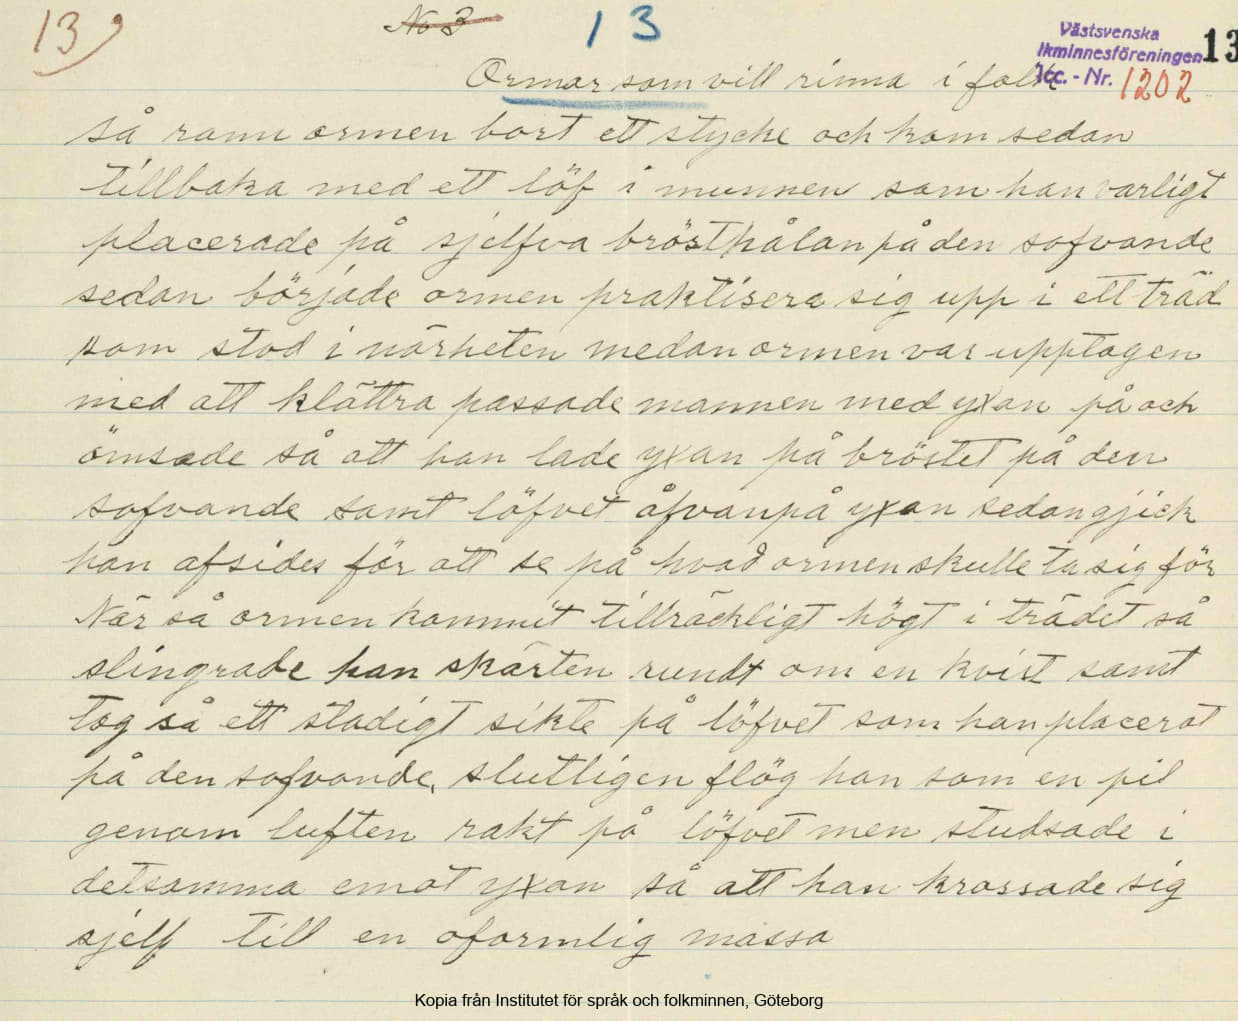 13 No 3 13 Västsvenska 13
lkminnesföreningen
Acc. - Nr. 1202
Ormar som vill rinna i folk
så rann ormen bort ett stycke och kom sedan
tillbaka med ett löf i munnen som han varligt
placerade på sjelfva brösthålan på den sofvande
sedan började ormen praktisera sig upp i ett träd
som stod i närheten medan ormen var upptagen
med att klättra passade mannen med yxan på och
ömsade så att han lade yxan på bröstet på den
sofvande samt löfvet åfvanpå yxan sedan gjick
han afsides för att se på hvad ormen skulle ta sig för
När så ormen kommit tillräckligt högt i trädet så
slingrade han skärten rundt om en kvist samt
tog så ett stadigt sikte på löfvet som han placerat
på den sofvande, slutligen flög han som en pil
genom luften rakt på löfvet men studsade i
detsamma emot yxan så att han krossade sig
sjelf till en oformlig massa
Kopia från Institutet för språk och folkminnen, Göteborg